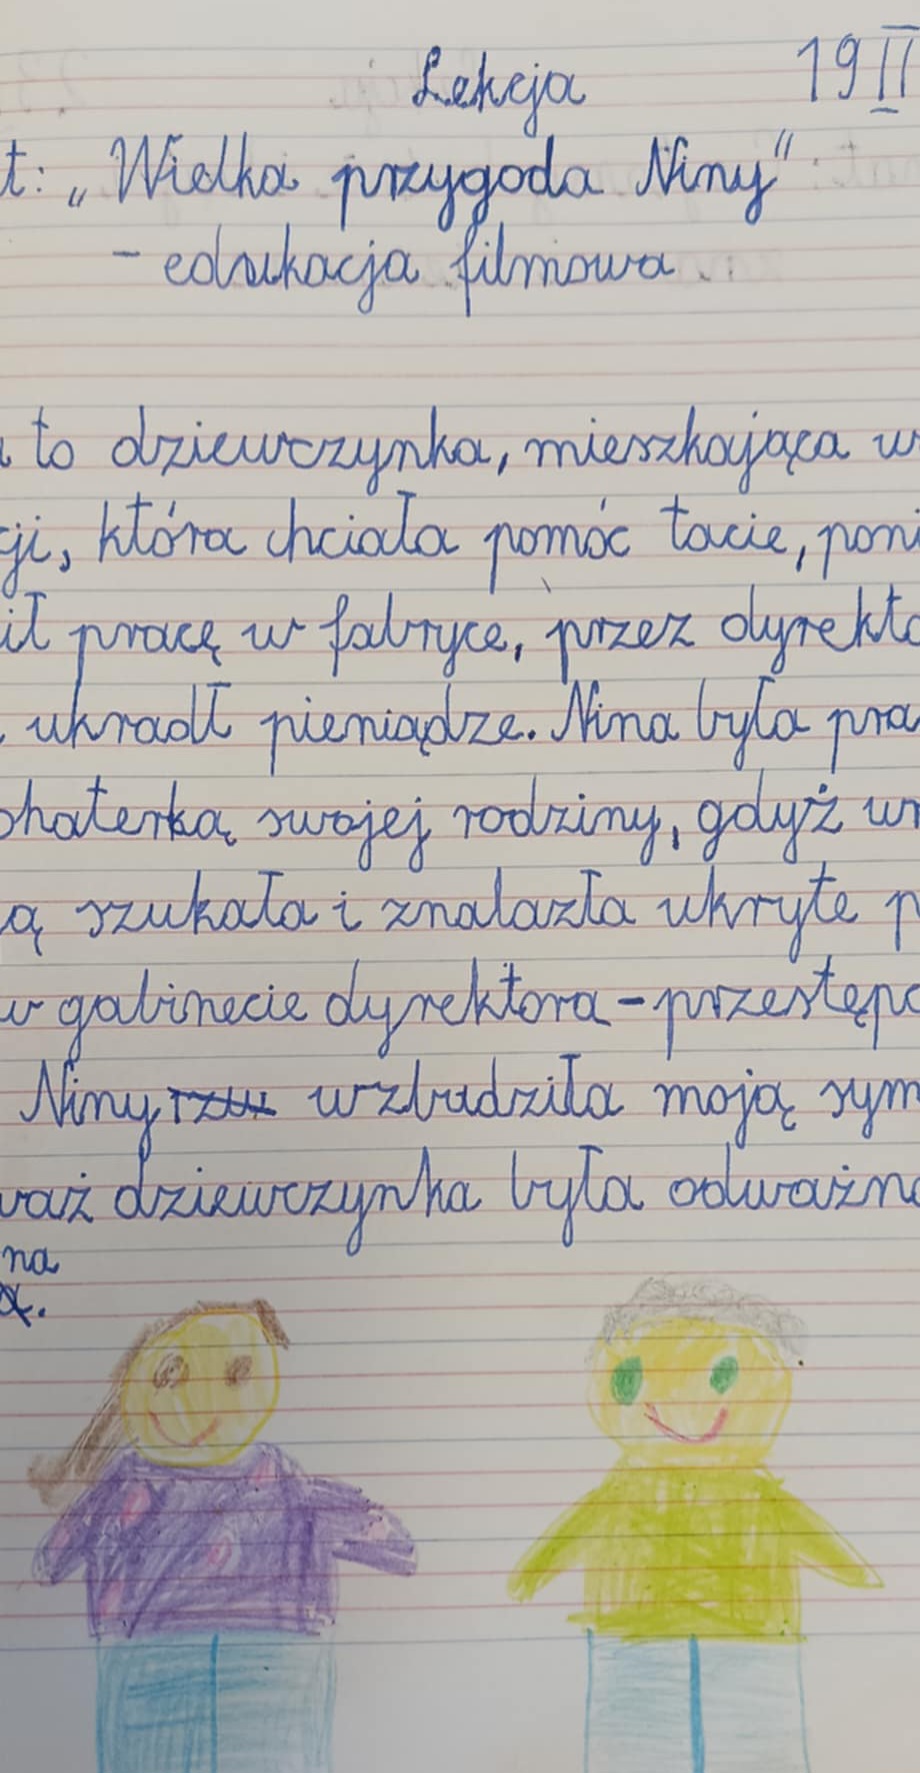 Lekcja 19 II
t: „Wielka przygoda Niny"
- edukacja filmowa
to dziewczynka, mieszkająca w
ji, która chciała pomóc tacie, poni
ił pracę w fabryce, przez dyrekto
ukradł pieniądze. Nina była pra
ohaterką swojej rodziny, gdyż wr
ą szukała i znalazła ukryte p
w gabinecie dyrektora - przestępc
Niny wzbudziła moją sym
waż dziewczynka była odważna
na